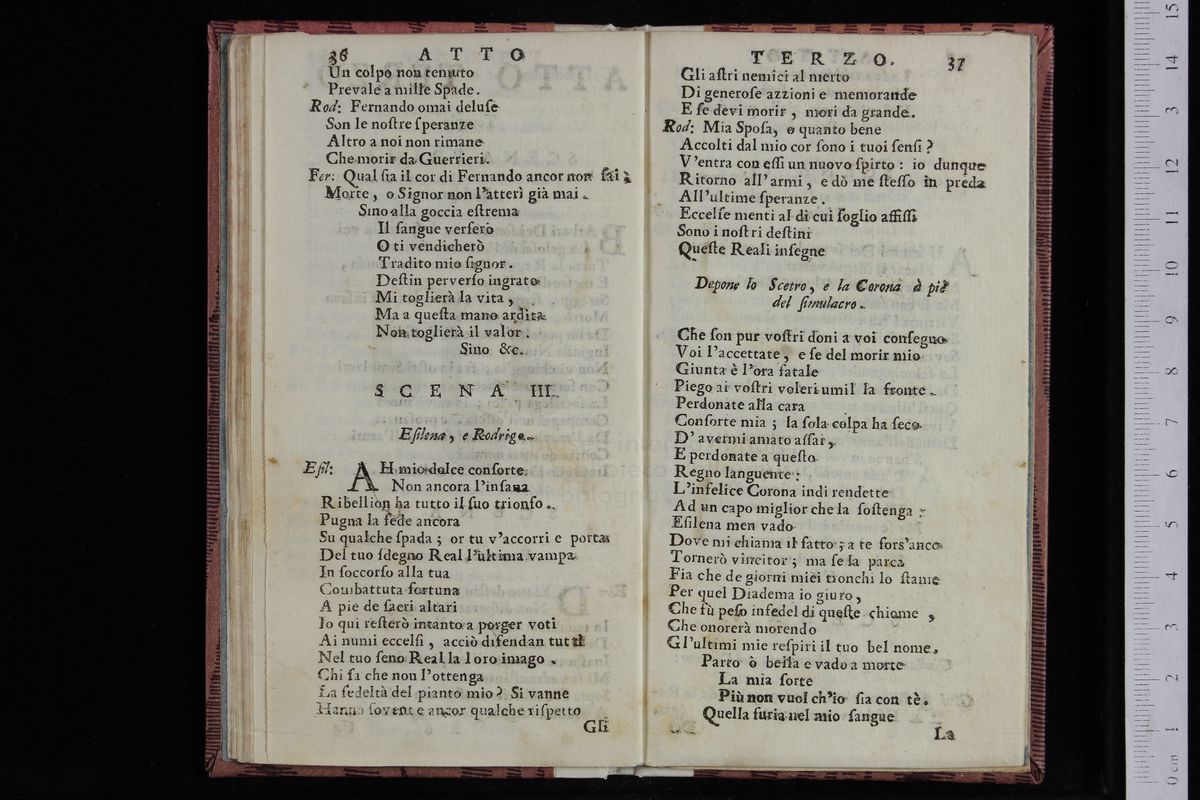 36 ATTO
Un colpo non temuto
Prevale a mille Spade.
Rod: Fernando omai deluſe
Son le noſtre ſperanze
Altro a noi non rimane
Che morir da Guerrieri.
Fer: Qual ſia il cor di Fernando ancor non ſai;
Morte, o Signor non l'atterì già mai.
Sino alla goccia eſtrema
Il ſangue verſerò
O ti vendicherò
Tradito mio ſignor.
Deſtin perverſo ingrato
Mi toglierà la vita,
Ma a queſta mano ardita
Non toglierà il valor.
Sino &c.
SCENA III.
Eſilena, e Rodrigo.
Eſil: AH mio dolce conſorte
Non ancora l'inſana
Ribellion ha tutto il ſuo trionfo.
Pugna la fede ancora
Su qualche ſpada; or tu v'accorri e porta
Del tuo ſdegno Real l'ultima vampa
In ſoccorſo alla tua
Combattuta fortuna
A pie de ſacri altari
Io qui reſterò intanto a porger voti
Ai numi eccelſi, acciò difendan tutti
Nel tuo ſeno Real la loro imago.
Chi ſa che non l'ottenga
La fedeltà del pianto mio? Si vanne
Hanno ſovente ancor qualche riſpetto
Gli
TERZO. 37
Gli aſtri nemici al merto
Di generoſe azzioni e memorande
E ſe devi morir, mori da grande.
Rod: Mia Spoſa, o quanto bene
Accolti dal mio cor ſono i tuoi ſenſi?
V'entra con eſſi un nuovo ſpirto: io dunque
Ritorno all'armi, e dò me ſteſſo in preda
All'ultime ſperanze.
Eccelſe menti al di cui ſoglio affiſſi
Sono i noſtri deſtini
Queſte Reali inſegne
Depone lo Scetro, e la Corona à piè
del ſimulacro.
Che ſon pur voſtri doni a voi conſegno
Voi l'accettate, e ſe del morir mio
Giunta è l'ora fatale
Piego ai voſtri voleri umil la fronte.
Perdonate alla cara
Conſorte mia; la ſola colpa ha ſeco
D'avermi amato aſſai,
E perdonate a queſto
Regno languente:
L'infelice Corona indi rendette
Ad un capo miglior che la ſoſtenga:
Eſilena men vado
Dove mi chiama il fatto; a te forſ'anco
Tornerò vincitor; ma ſe la parca
Fia che de giorni miei tronchi lo ſtame
Per quel Diadema io giuro,
Che fù peſo infedel di queſte chiome,
Che onorerà morendo
Gl'ultimi mie reſpiri il tuo bel nome.
Parto ò bella e vado a morte
La mia ſorte
Più non vuol ch'io ſia con tè.
Quella furia nel mio ſangue
La